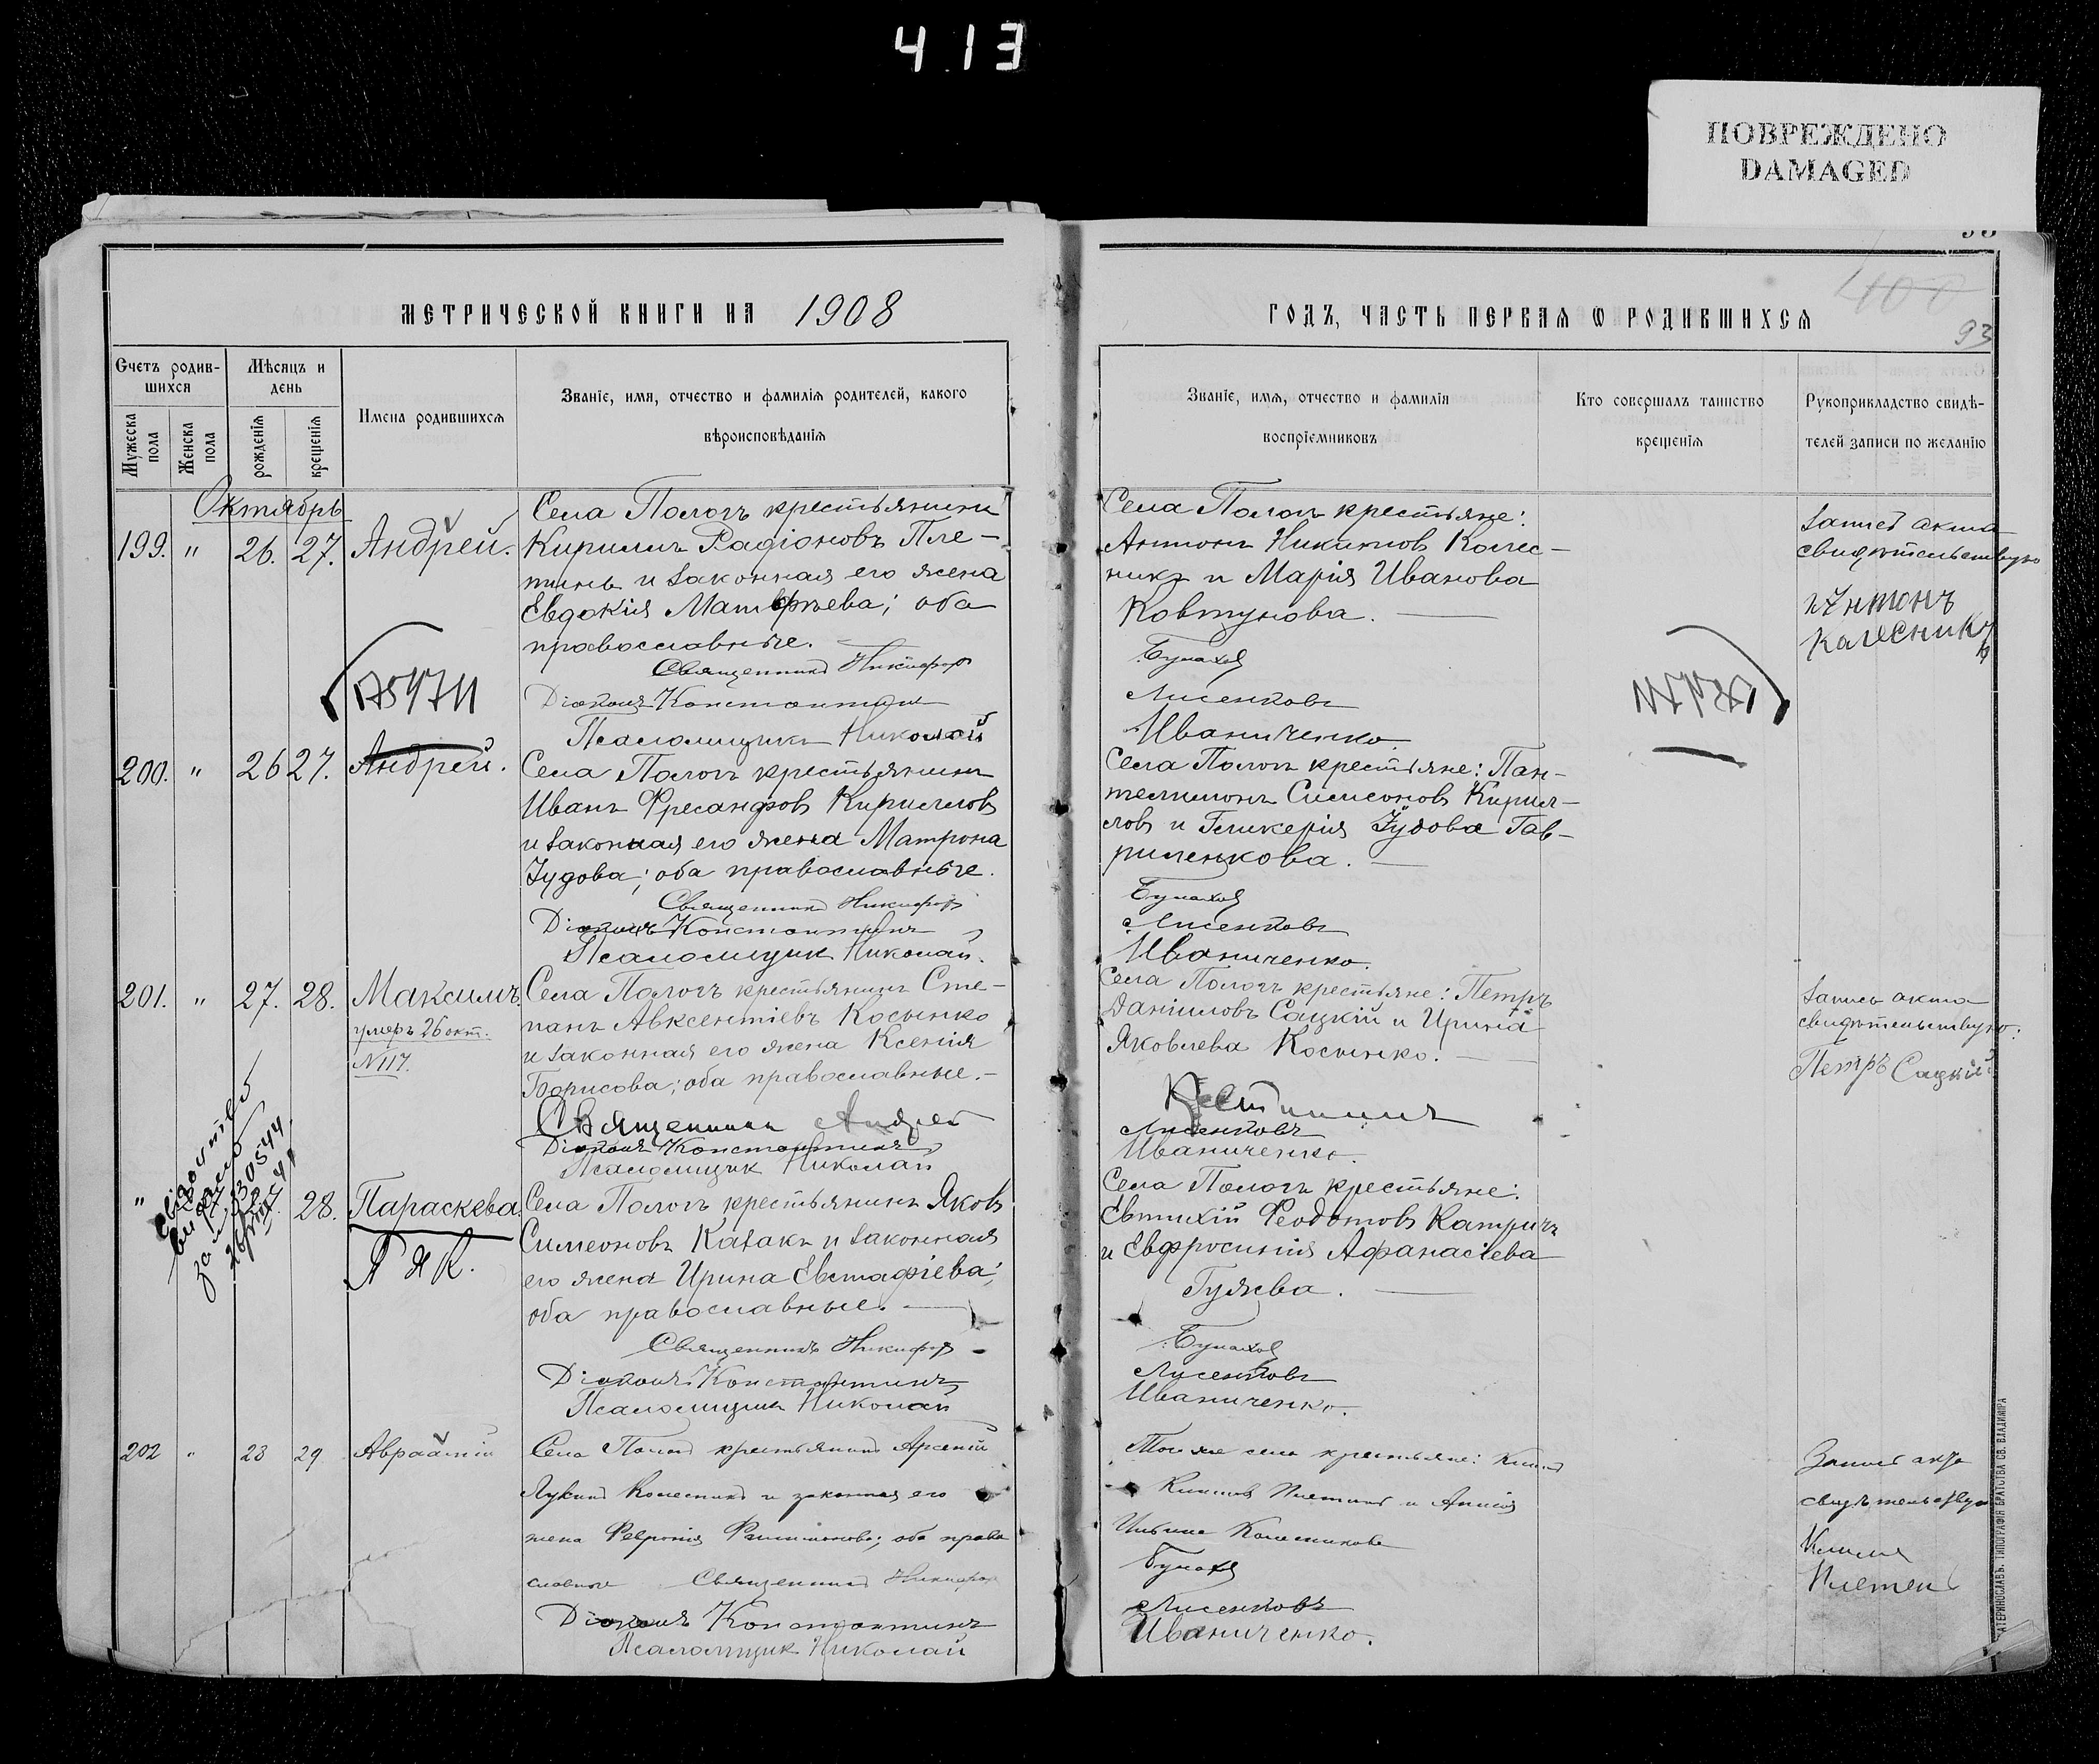 413
ПОВРЕЖДЕНО
DAMAGED
МЕТРИЧЕСКОЙ КНИГИ НА 1908
ГОДЪ, ЧАСТЬ ПЕРВАЯ Ѡ РОДИВШИХСЯ
400
93
Счетъ родив-
шихся
Мужеска пола
Женска пола
Мѣсяцъ и
день
рожденія
крещенія
Имена родившихся
Званіе, имя, отчество и фамилія родителей, какого
вѣроисповѣданія
Званіе, имя, отчество и фамилія
воспріємниковъ
Кто совершалъ таинство
крещенія
Рукоприкладство свидѣ-
телей записи по желанію
Октябрь
199. " 26. 27. Андрей.
Села Пологъ крестьянинъ
Кириллъ Радіоновъ Пле-
тинь и законная его жена
Евдокія Матфѣева; оба
православные.
Священникъ Никифоръ
Діаконъ Константинъ
Псаломщикъ Николай
Села Пологъ крестьяне:
Антонъ Никитовъ Колес-
никъ и Марія Иванова
Ковтунова.
Булахов
Лисенковъ
Иваниченко.
Запись акта
свидѣтельствую
Антонъ
Калесникъ
200. " 26 27. Андрей.
Села Пологъ крестьянинъ
Иванъ Кирилловъ
и законная его жена Матрона
Іудова; оба православные.
Священникъ Никифоръ
Діаконъ Константинъ
Псаломщик Николай.
Села Пологъ крестьяне: Пан-
телимонъ Симеоновъ Кирил-
ловъ и Гликерія Іудова Гав-
риленкова.
Булахов
Лисенковъ
Иваниченко.
201. " 27. 28. Максимъ.
умеръ 26 окт.
N 117.
Села Пологъ крестьянинъ Сте-
панъ Авксентіевъ Косынко
и законная его жена Ксенія
Борисова; оба православные.
Священникъ Андрей
Діаконъ Константинъ
Псаломщик Николай
Села Пологъ крестьяне: Петръ
Даниловъ Сацкій и Ирина
Яковлева Косынко.
Лисенковъ
Иваниченко.
Запись акта
свидѣтельствую.
Петръ Сацкій
" 28. Параскева.
Села Пологъ крестьянинъ Яковъ
Симеоновъ Казакъ и законная
его жена Ирина Евстафіева;
оба православные.
Священникъ Никифоръ
Діаконъ Константинъ
Псаломщикъ Николай
Села Пологъ крестьяне:
Евтихій Феодотовъ Катричъ
и Евфросинія Афанасіева
Гуляева.
Булахов
Лисенковъ
Иваниченко.
202 " 28 29 Авраамій
Села Пологъ крестьянинъ Арсеній
Лукинъ Колесникъ и законная его
жена Феvронія; оба право
славные Священникъ Никифоръ
Діаконъ Константинъ
Псаломщик Николай
Того же села крестьяне: Климъ
Климовъ Плетинь и Анисія
Ильина Колесникова
Булахов
Лисенковъ
Иваниченко.
Запись акта
свидѣтельствую
Климъ
Плетень
ЕКАТЕРИНОСЛАВЪ. ТИПОГРАФІЯ БРАТСТВА СВ. ВЛАДИМІРА